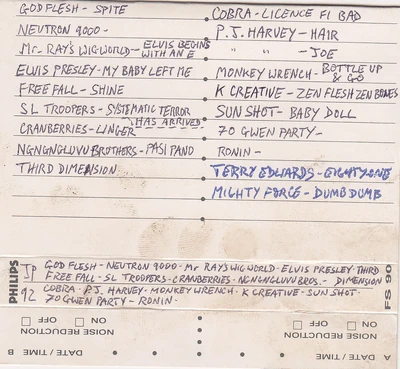 GODFLESH - SPITE
NEUTRON 9000 -
Mr RAY'S WIGWORLD - ELVIS BEGINS WITH AN E
ELVIS PRESLEY - MY BABY LEFT ME
FREE FALL - SHINE
SL TROOPERS - SYSTEMATIC TERROR HAS ARRIVED
CRANBERRIES - LINGER
NGNGNGLUVU BROTHERS - PASI PANO
THIRD DIMENSION
COBRA - LICENCE FI BAD
P.J. HARVEY - HAIR
" " - JOE
MONKEY WRENCH - BOTTLE UP & GO
K CREATIVE - ZEN FLESH ZEN BONES
SUN SHOT - BABY DOLL
70 GWEN PARTY -
RONIN -
TERRY EDWARDS - EIGHTY ONE
MIGHTY FORCE - DUMB DUMB
PHILIPS
JP
92
GODFLESH - NEUTRON 9000 - Mr RAY'S WIGWORLD - ELVIS PRESLEY - THIRD
FREE FALL - SL TROOPERS - CRANBERRIES - NGNGNGLUVU BROS. - DIMENSION
COBRA - P.J. HARVEY - MONKEY WRENCH - K CREATIVE - SUN SHOT -
70 GWEN PARTY - RONIN -
FS 90
A DATE / TIME
NOISE REDUCTION
ON OFF
B DATE / TIME
NOISE REDUCTION
ON OFF